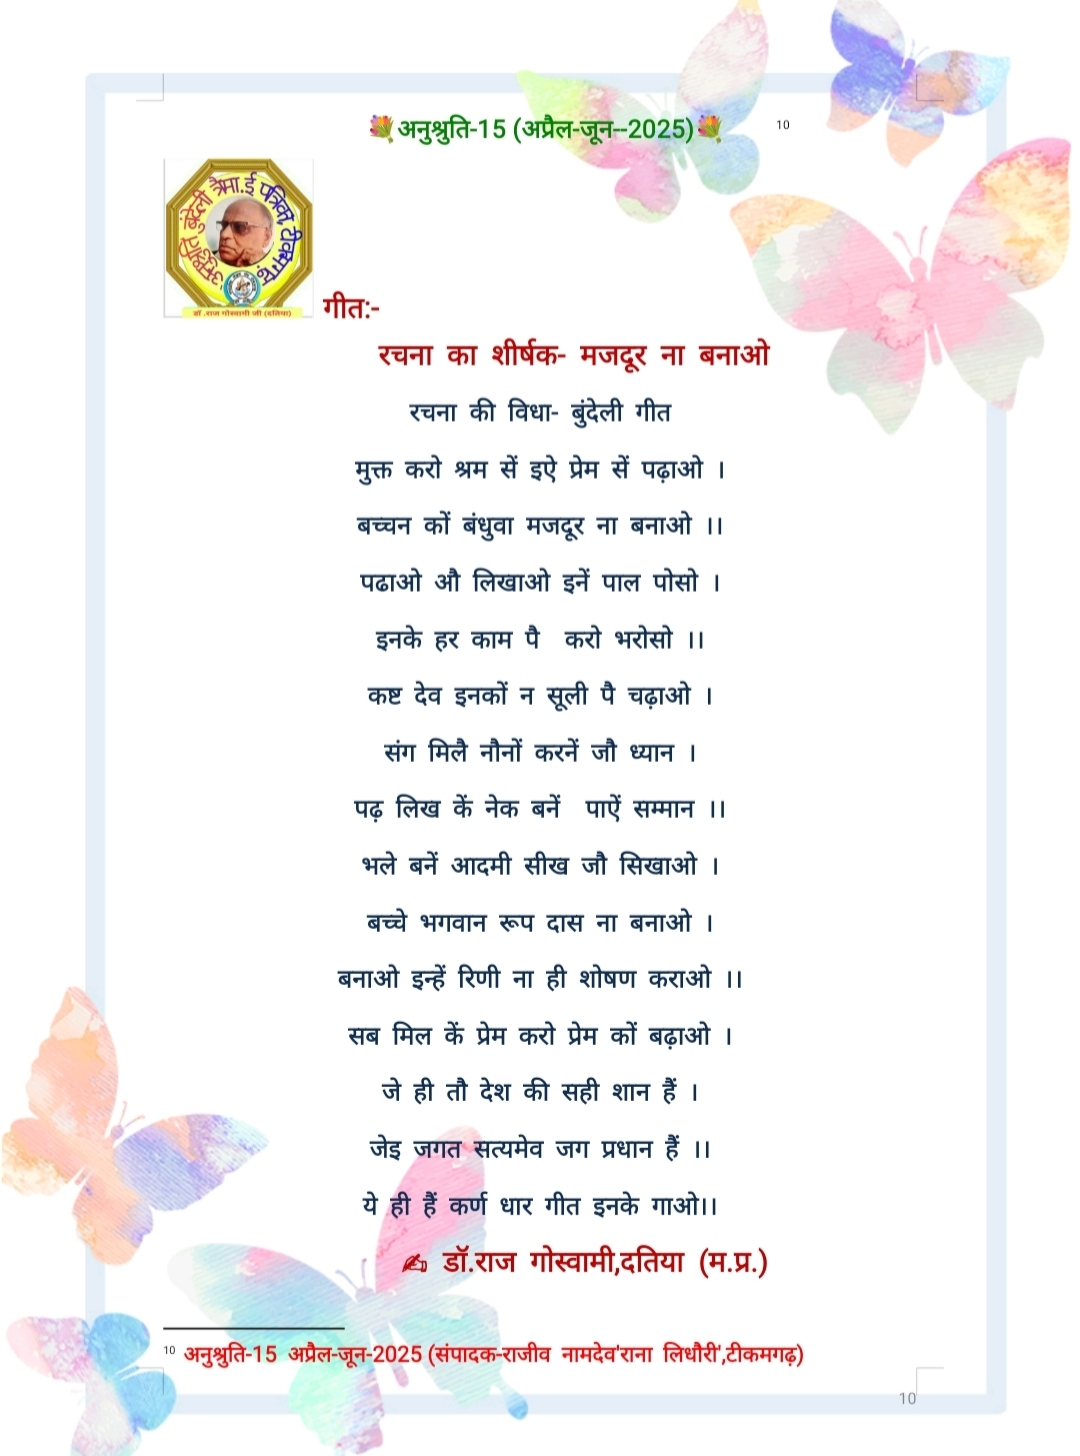 💐अनुश्रुति-15 (अप्रैल-जून--2025)💐 10
अनुश्रुति बुंदेली त्रैमा.ई पत्रिका, टीकमगढ़
डॉ .राज गोस्वामी जी (दतिया)
गीत:-
रचना का शीर्षक- मजदूर ना बनाओ
रचना की विधा- बुंदेली गीत
मुक्त करो श्रम सें इऐ प्रेम सें पढ़ाओ ।
बच्चन कों बंधुवा मजदूर ना बनाओ ।।
पढाओ औ लिखाओ इनें पाल पोसो ।
इनके हर काम पै करो भरोसो ।।
कष्ट देव इनकों न सूली पै चढ़ाओ ।
संग मिलै नौनों करनें जौ ध्यान ।
पढ़ लिख कें नेक बनें पाऐं सम्मान ।।
भले बनें आदमी सीख जौ सिखाओ ।
बच्चे भगवान रूप दास ना बनाओ ।
बनाओ इन्हें रिणी ना ही शोषण कराओ ।।
सब मिल कें प्रेम करो प्रेम कों बढ़ाओ ।
जे ही तौ देश की सही शान हैं ।
जेइ जगत सत्यमेव जग प्रधान हैं ।।
ये ही हैं कर्ण धार गीत इनके गाओ।।
✍ डॉ.राज गोस्वामी,दतिया (म.प्र.)
10 अनुश्रुति-15 अप्रैल-जून-2025 (संपादक-राजीव नामदेव'राना लिधौरी',टीकमगढ़)
10